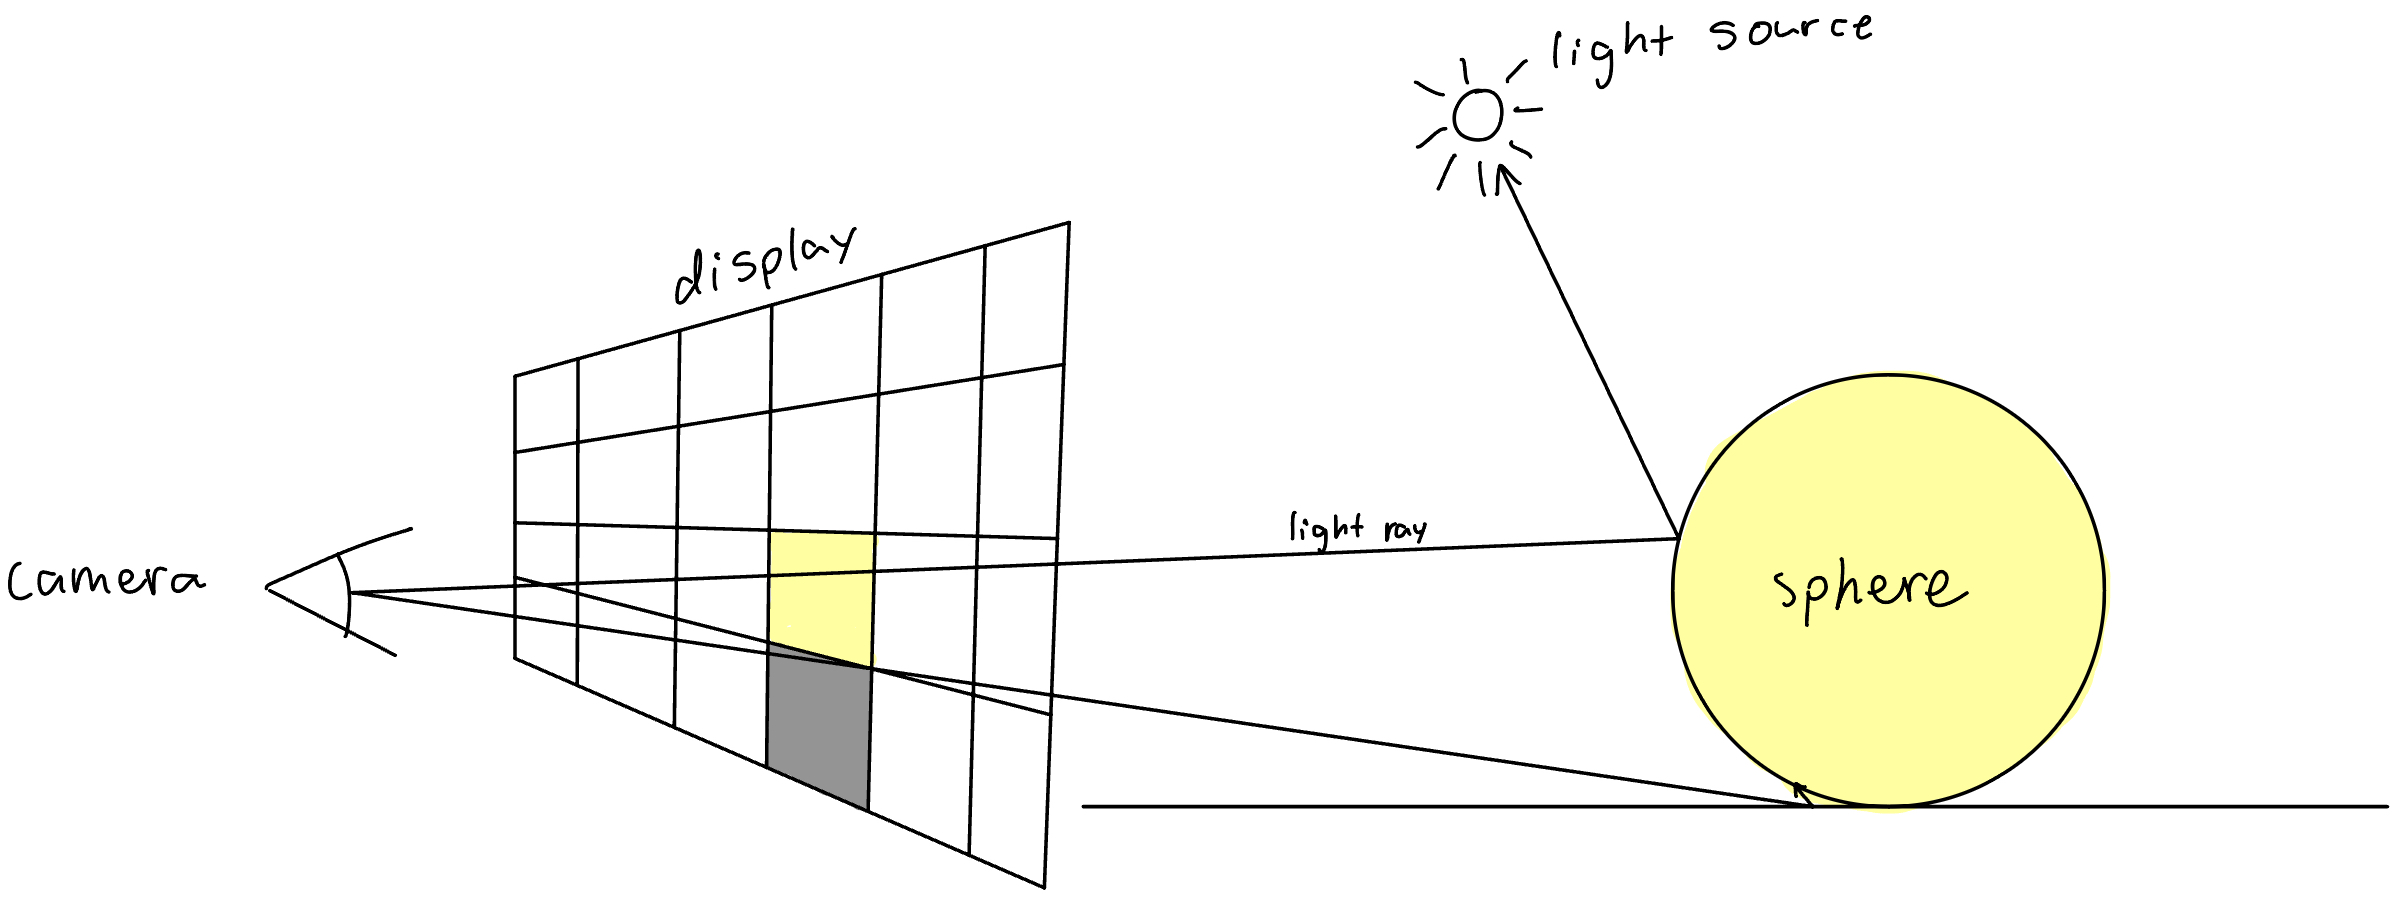 light source
display
light ray
camera
sphere